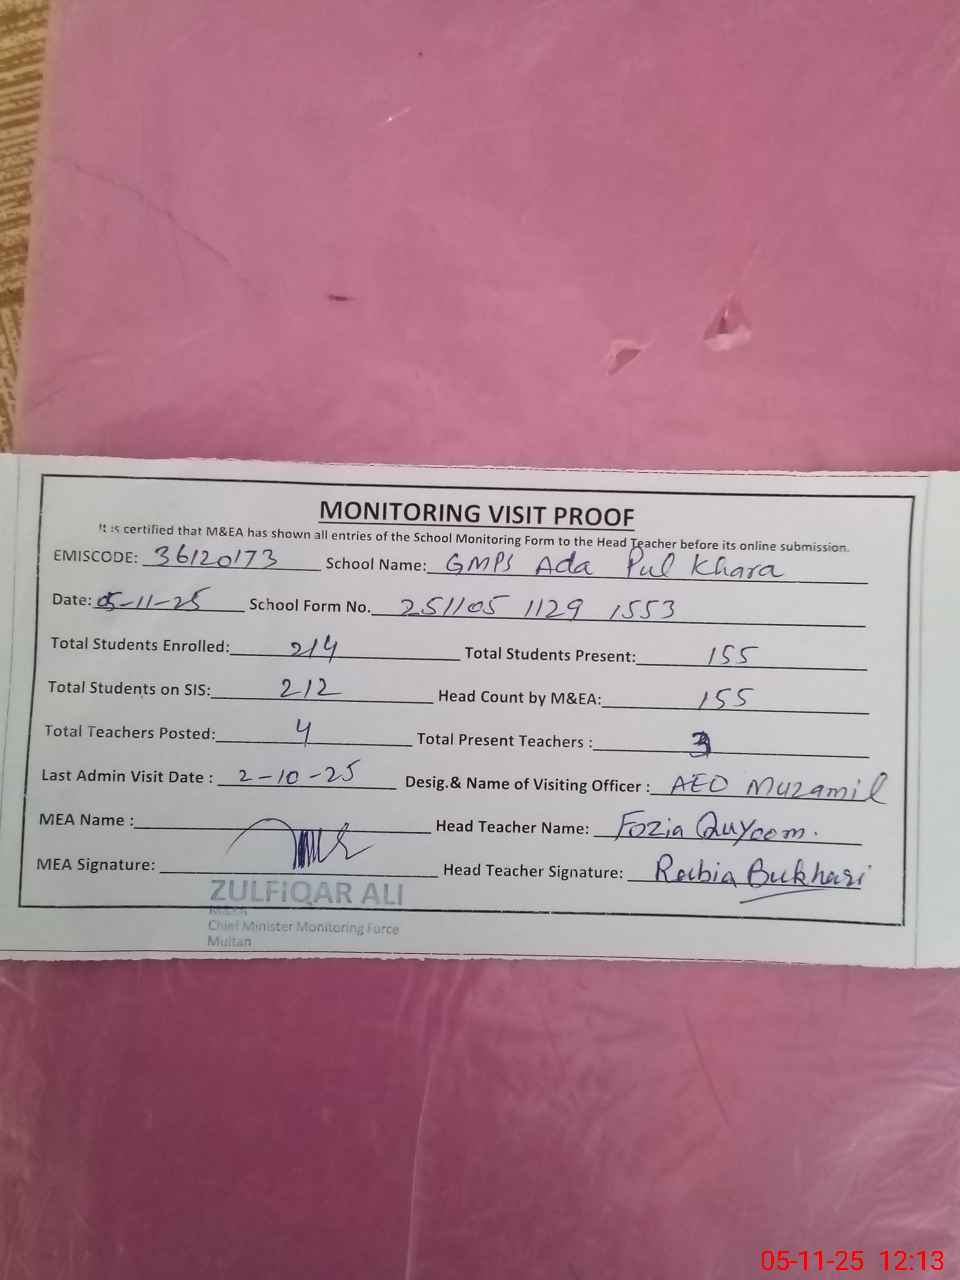 MONITORING VISIT PROOF
It is certified that M&EA has shown all entries of the School Monitoring Form to the Head Teacher before its online submission.
EMISCODE: 36120173 School Name: GMPS Ada Pul Khara
Date: 05-11-25 School Form No. 251105 1129 1553
Total Students Enrolled: 214 Total Students Present: 155
Total Students on SIS: 212 Head Count by M&EA: 155
Total Teachers Posted: 4 Total Present Teachers : 3
Last Admin Visit Date : 2-10-25 Desig.& Name of Visiting Officer : AEO Muzamil
MEA Name : Head Teacher Name: Fozia Quyoom.
MEA Signature: Head Teacher Signature: Rabia Bukhari
ZULFIQAR ALI
M&EA
Chief Minister Monitoring Force
Multan
05-11-25 12:13